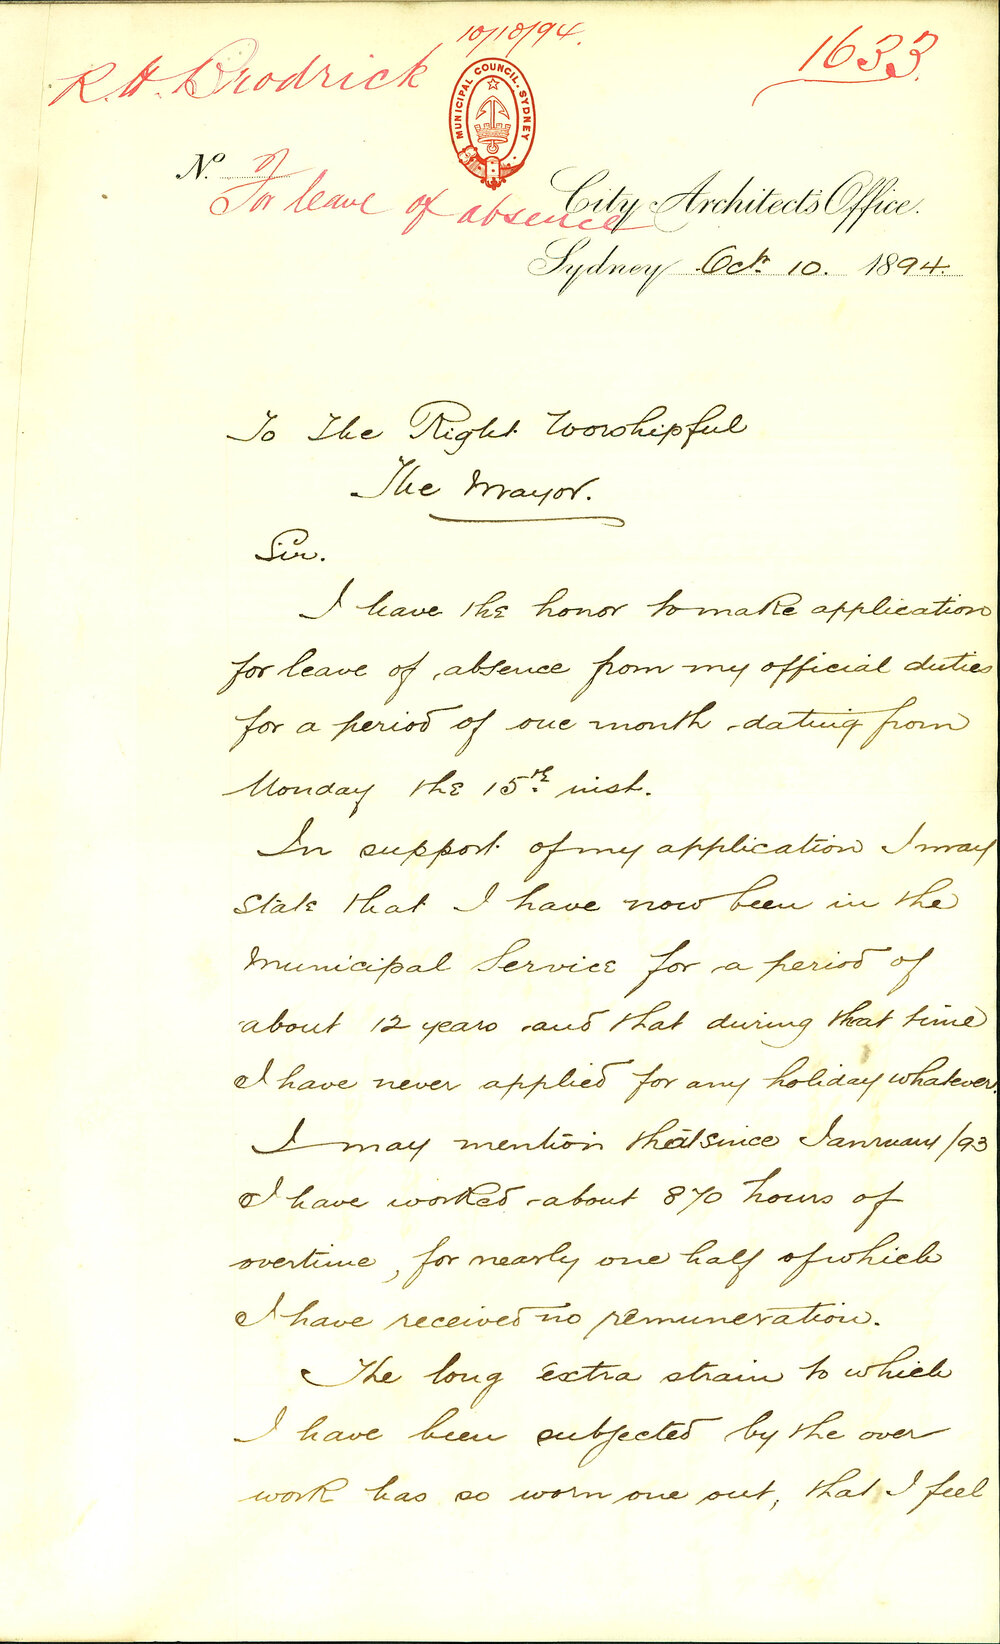 10/10/94.
R. H. Brodrick
1633
MUNICIPAL COUNCIL. SYDNEY
No.
For leave of absence
City Architect's Office.
Sydney Octr 10. 1894.
To The Right Worshipful
The Mayor.
Sir.
I have the honor to make application
for leave of absence from my official duties
for a period of one month dating from
Monday the 15th inst.
In support of my application I may
state that I have now been in the
Municipal Service for a period of
about 12 years and that during that time
I have never applied for any holiday whatever.
I may mention that since January /93
I have worked about 870 hours of
overtime, for nearly one half of which
I have received no remuneration.
The long extra strain to which
I have been subjected by the over
work has so worn one out, that I feel